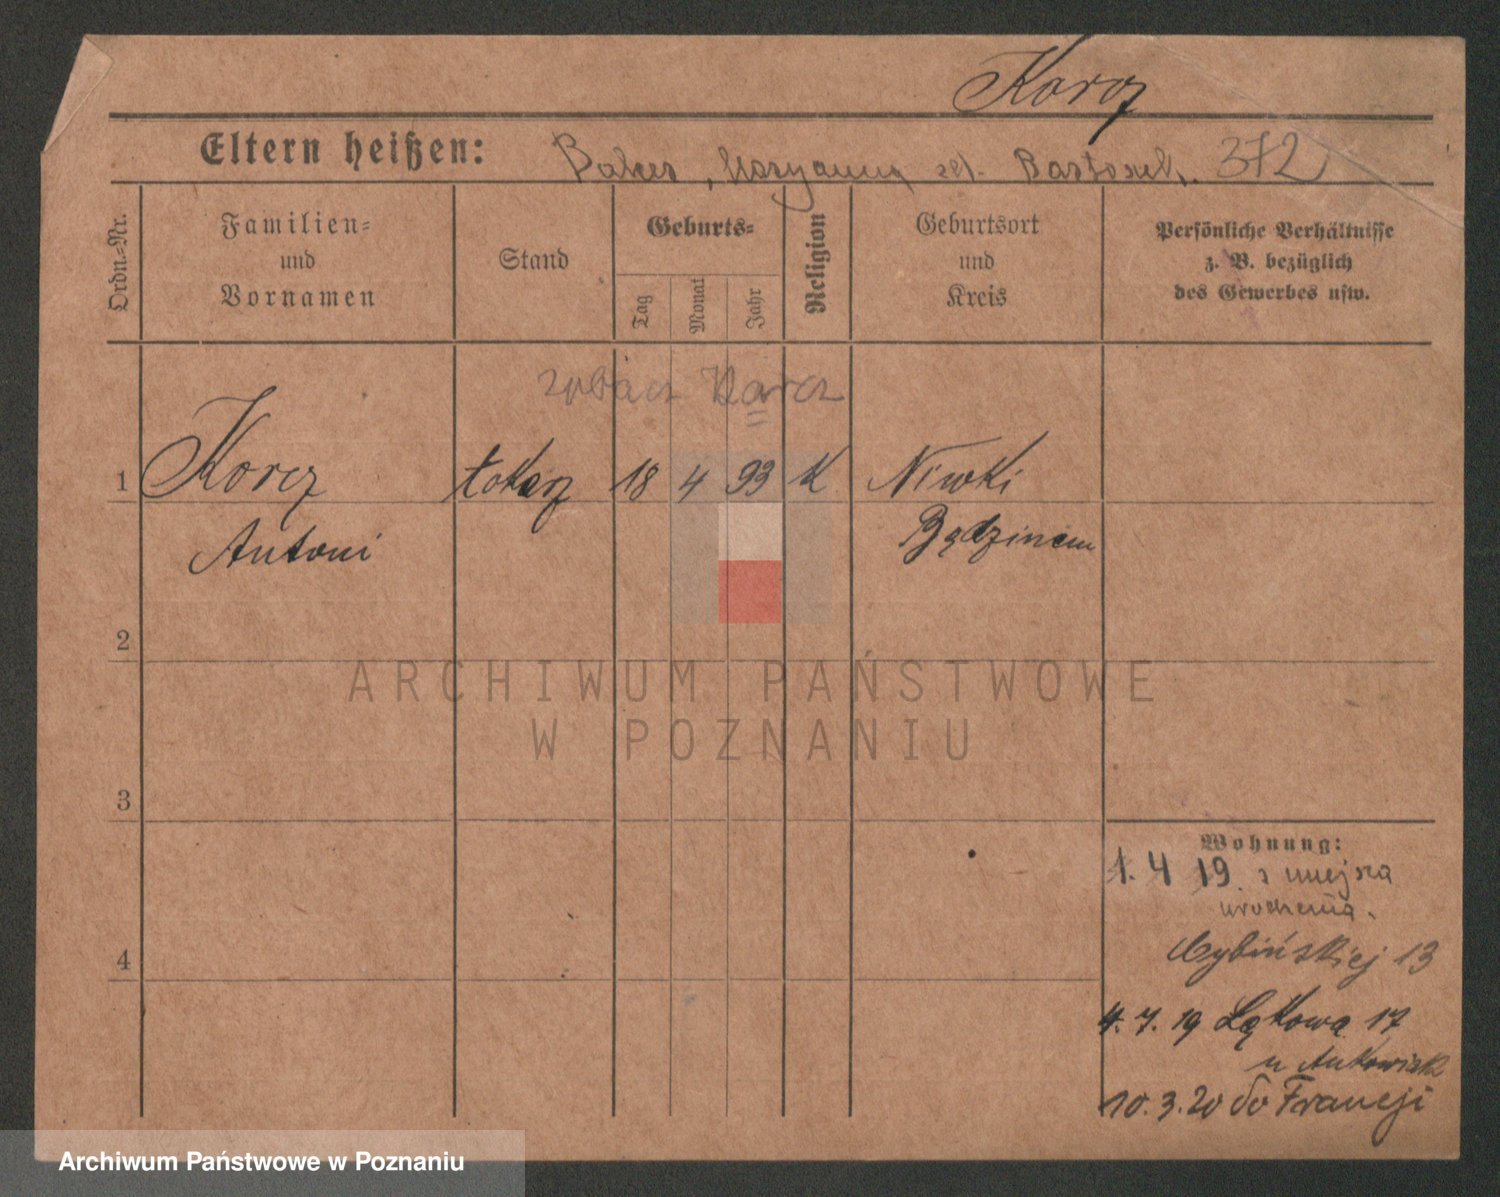 Korcz
Eltern heißen: Maryanna Bartosek 372
Ordn.-Nr.
Familien-
und
Vornamen
Stand
Geburts-
Tag
Monat
Jahr
Religion
Geburtsort
und
Kreis
Persönliche Verhältnisse
z. B. bezüglich
des Gewerbes usw.
zobacz Karcz
1 Korcz tokarz 18 4 93 K Niwki
Antoni Będzinem
2
3
4
Wohnung:
1. 4 19. z miejsca
urodzenia.
Cybińskiej 13
4. 7. 19 Łąkowa 17
u Antkowiak
10. 3. 20 do Francji
ARCHIWUM PAŃSTWOWE
W POZNANIU
Archiwum Państwowe w Poznaniu